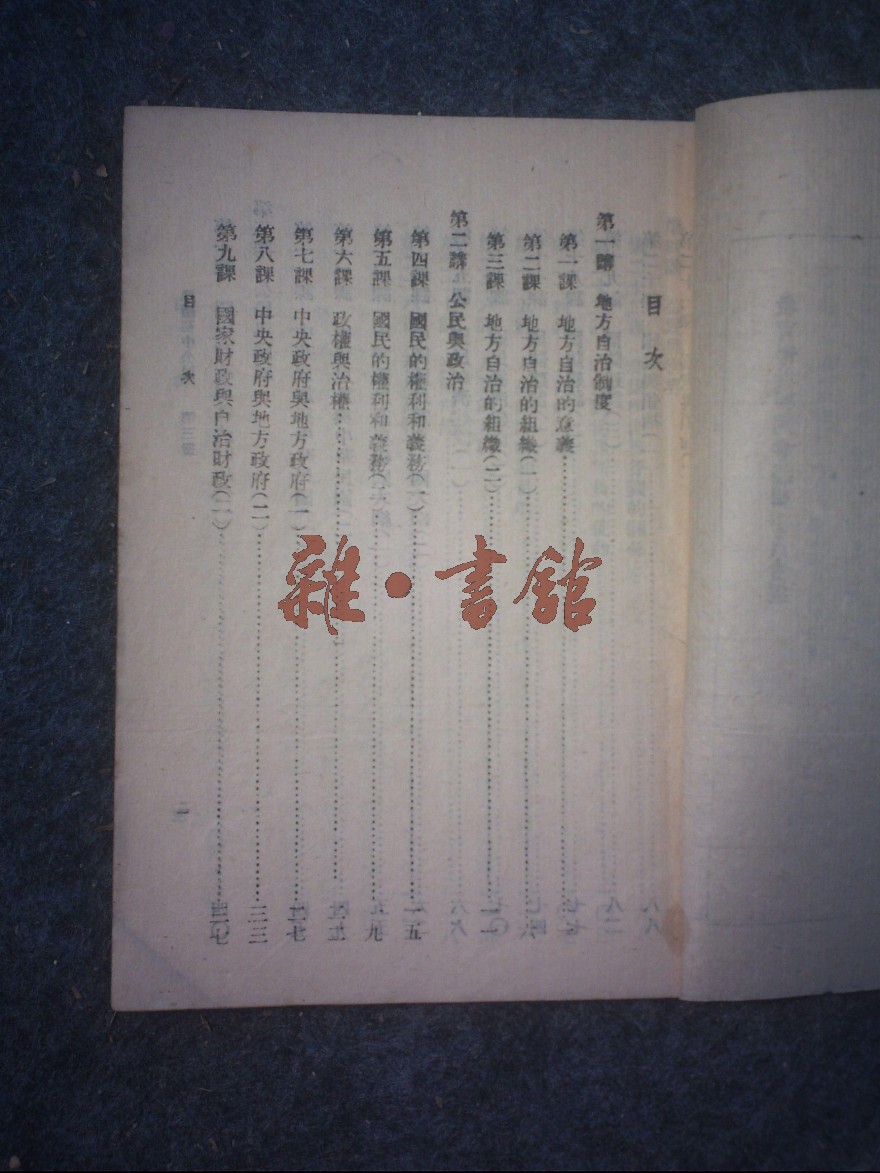 目次
第一講 地方自治制度
第一課 地方自治的意義
第二課 地方自治的組織(一)
第三課 地方自治的組織(二) 一一
第二講 公民與政治
第四課 國民的權利和義務(一) 一五
第五課 國民的權利和義務(二)
第六課 政權與治權
第七課 中央政府與地方政府(一)
第八課 中央政府與地方政府(二) 三三
第九課 國家財政與自治財政(一)
目次
一
雜·書館